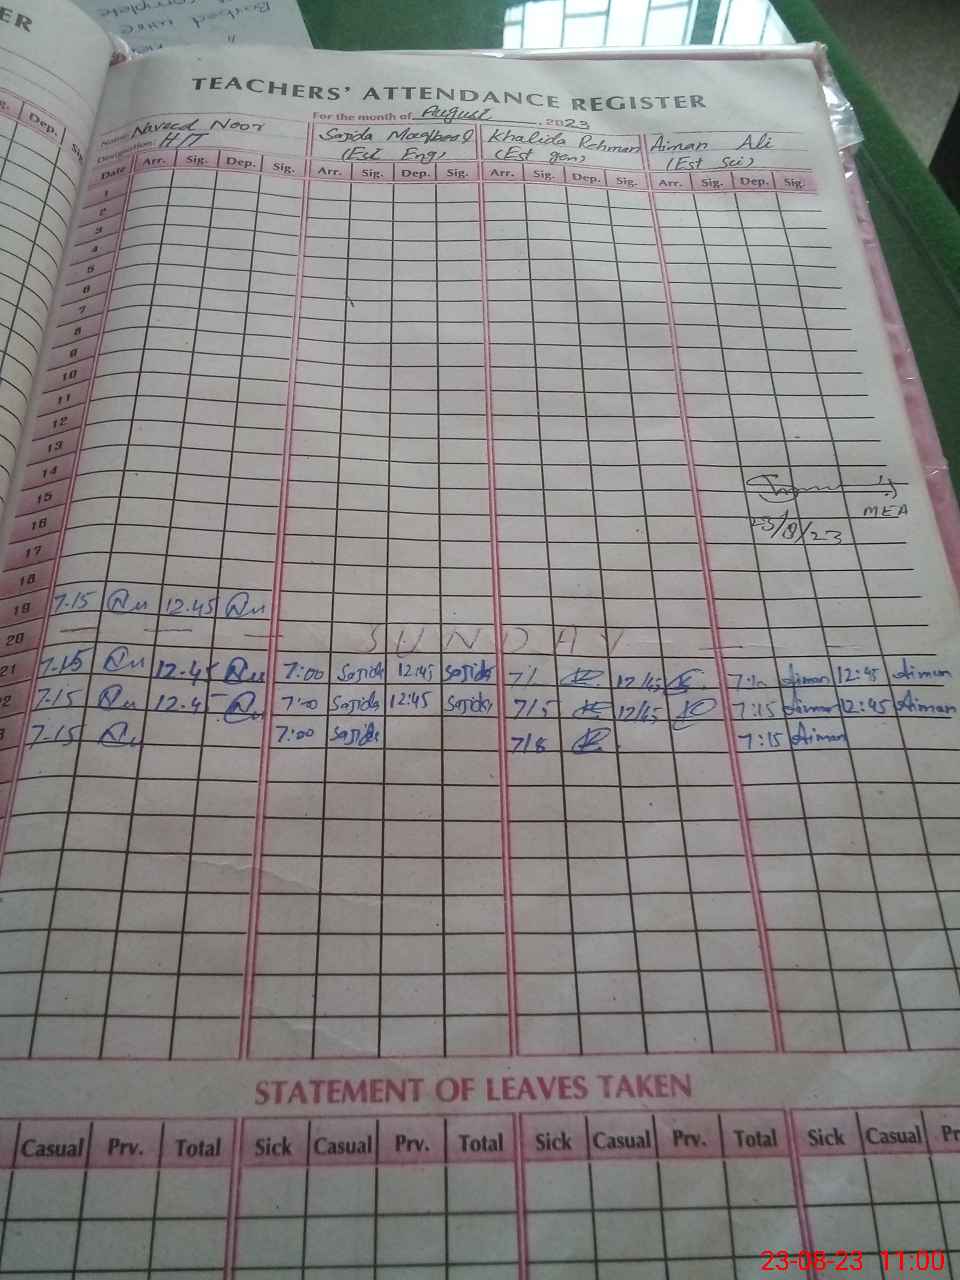 ER
TEACHERS' ATTENDANCE REGISTER
For the month of August, 2023
Name: Naveed Noor
Designation: H/T
Sajida Maqbool
(Est Eng)
Khalida Rehman
(Est gen)
Aiman Ali
(Est Sci)
Dep.
Date Arr. Sig. Dep. Sig. Arr. Sig. Dep. Sig. Arr. Sig. Dep. Sig. Arr. Sig. Dep. Sig.
1
2
3
4
5
6
7
8
9
10
11
12
13
14
15
MEA
16
23/8/23
17
18
19 7.15 12.45
20 SUNDAY
21 7.15 12.45 7:00 Sajida 12:45 Sajida 7/1 12/45 Aiman 12:45 Aiman
2 7.15 12.45 7:00 Sajida 12:45 Sajida 7/5 12/45 7:15 Aiman 12:45 Aiman
3 7.15 7:00 Sajida 7/8 7:15 Aiman
STATEMENT OF LEAVES TAKEN
Casual Prv. Total Sick Casual Prv. Total Sick Casual Prv. Total Sick Casual Pr
23-08-23 11:00